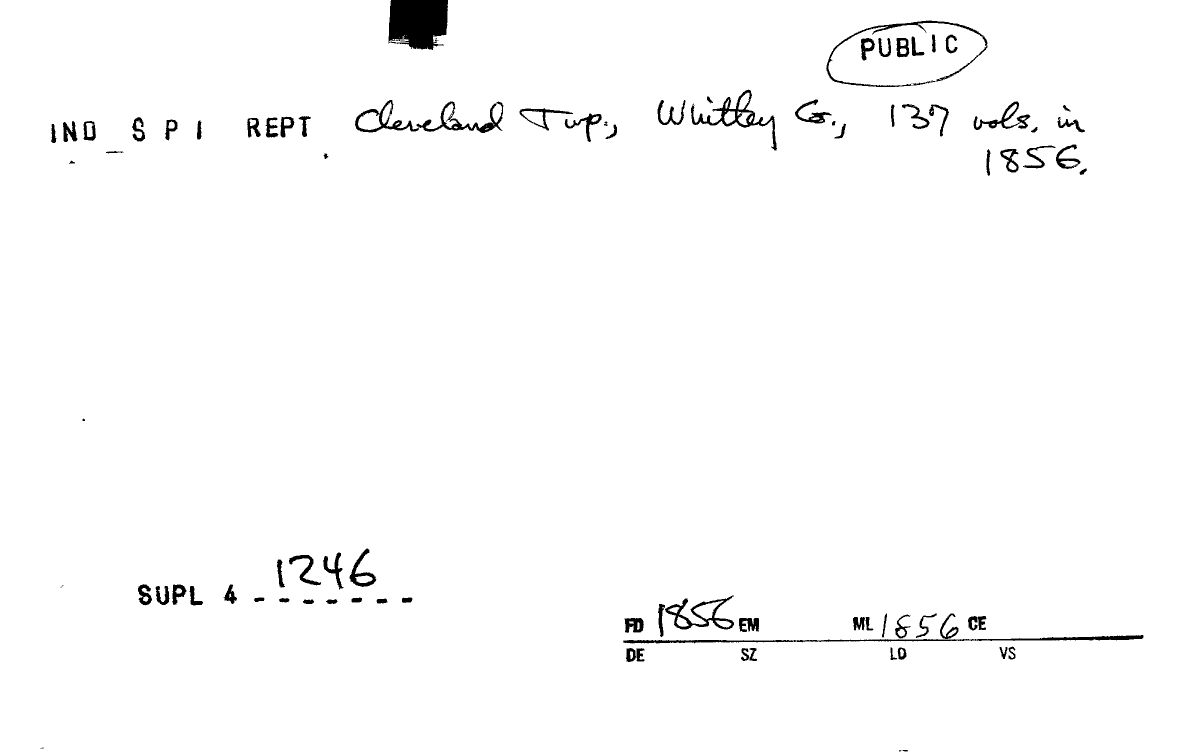 PUBLIC
IND S P I REPT Cleveland Twp., Whitley Co., 137 vols. in
1856.
1246
SUPL 4 - - - - - - -
FD 1856 EM ML 1856 CE
DE SZ LD VS